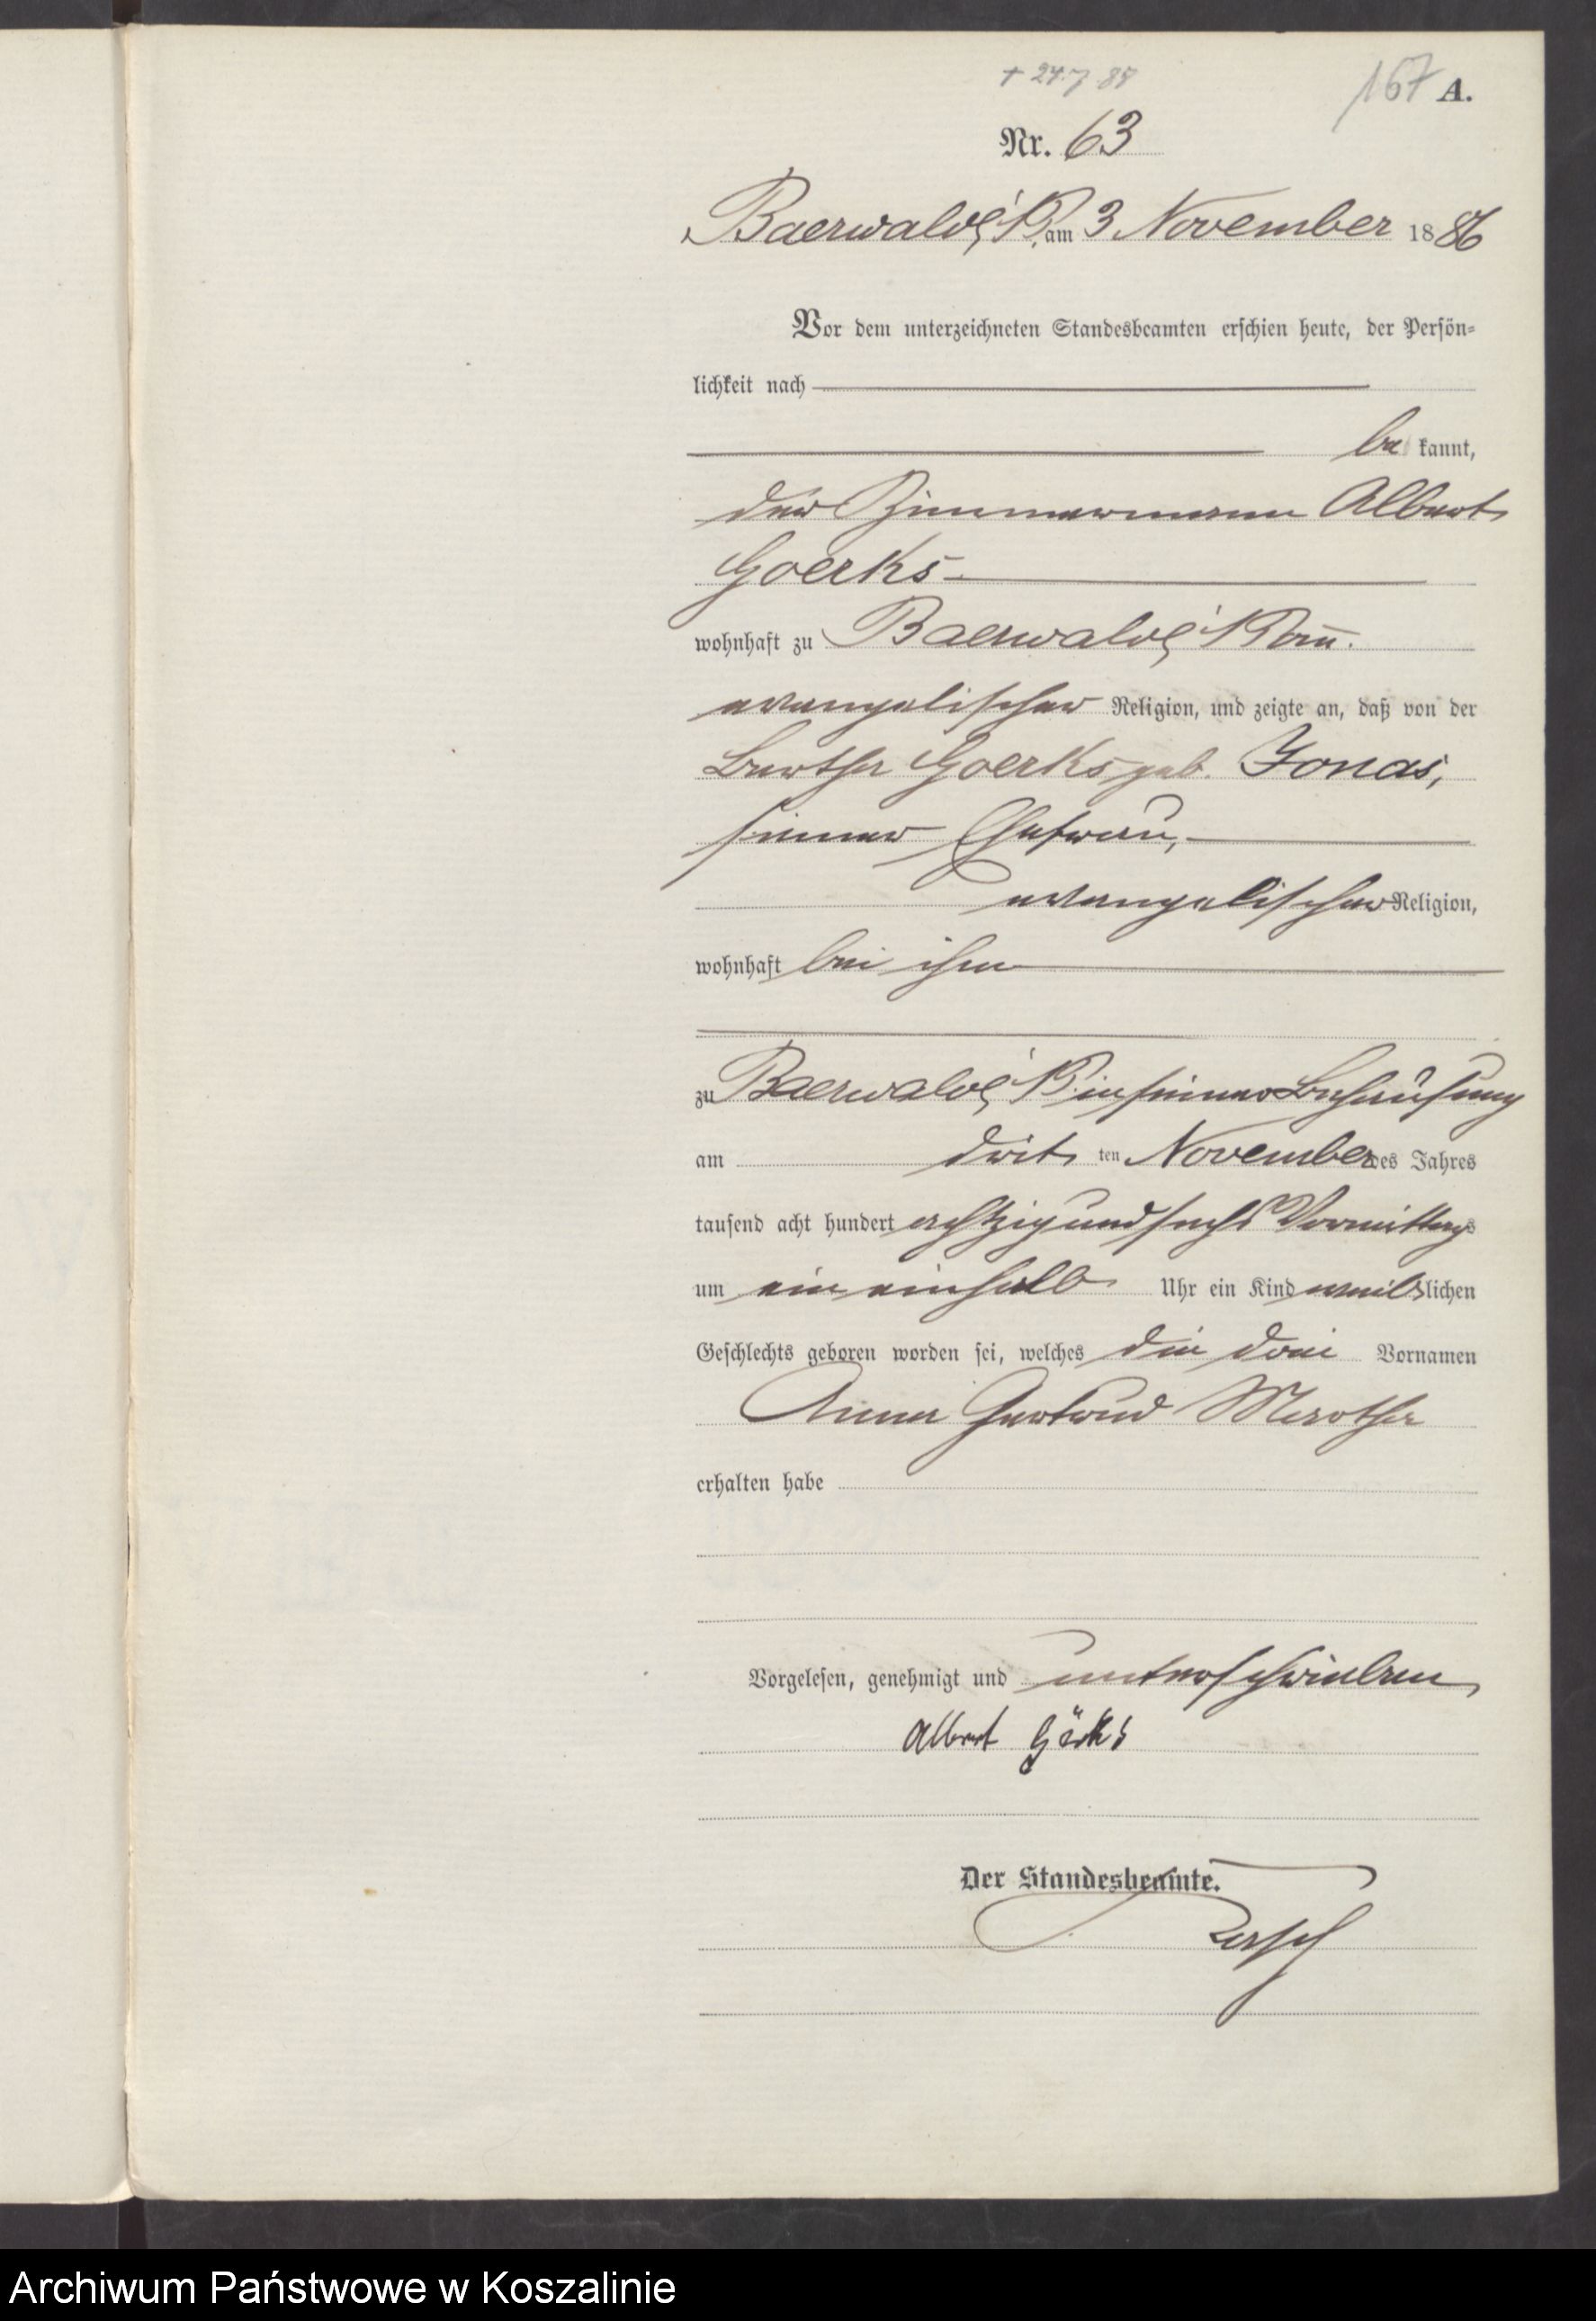 + 24.7.87
167 A.
Nr. 63
Baerwalde i/P. am 3 November 1886
Vor dem unterzeichneten Standesbeamten erschien heute, der Persön-
lichkeit nach
be kannt,
der Zimmermann Albert
Goerks
wohnhaft zu Baerwalde i/Pom.
evangelischer Religion, und zeigte an, daß von der
Bertha Goerks geb. Jonas,
seiner Ehefrau,
evangelischer Religion,
wohnhaft bei ihm
zu Baerwalde i/P. in seiner Behausung
am dritten November des Jahres
tausend acht hundert achtzig und sechs Vormittags
um ein einhalb Uhr ein Kind weiblichen
Geschlechts geboren worden sei, welches die drei Vornamen
Anna Gertrud Martha
erhalten habe
Vorgelesen, genehmigt und unterschrieben
Albert Görks
Der Standesbeamte.
Archiwum Państwowe w Koszalinie